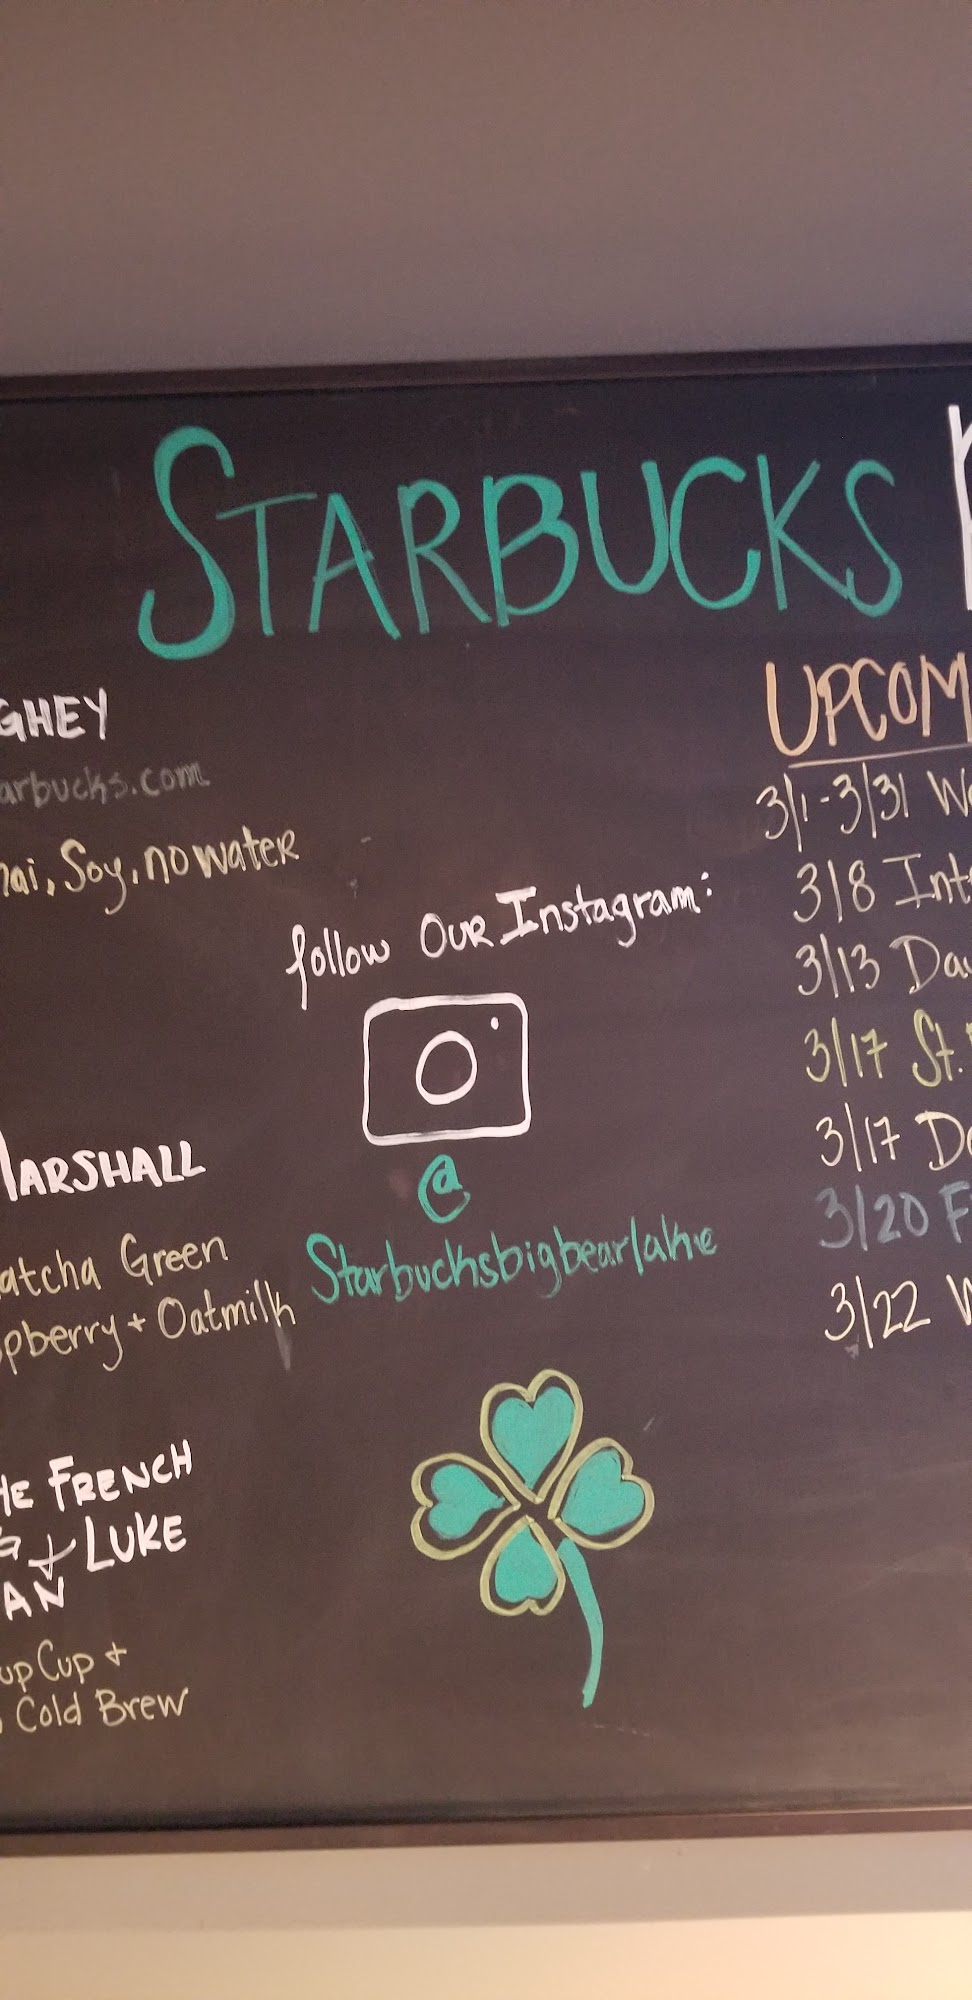 STARBUCKS
GHEY
arbucks.com
hai, Soy, no water
follow our Instagram:
@
Starbucksbigbearlake
MARSHALL
atcha Green
pberry + Oatmilk
HE FRENCH
G + LUKE
AN
up Cup +
Cold Brew
UPCOM
3/1-3/31 Wo
3/8 Int
3/13 Day
3/17 St.
3/17 Do
3/20 F
3/22 W